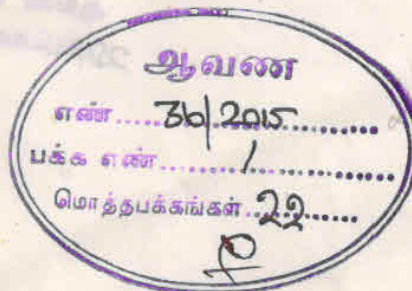 ஆவண
எண்.....36/2015..........
பக்க எண்.........1..............
மொத்தபக்கங்கள்.22......